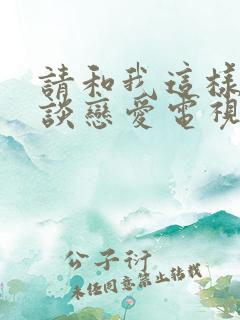 請和我這樣
談戀愛電視
公子衍
未經同意禁止轉載